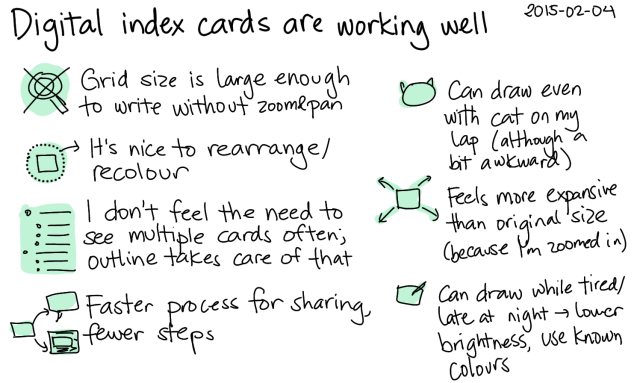 Digital index cards are working well
2015-02-04
Grid size is large enough
to write without zoom&pan
It's nice to rearrange/
recolour
I don't feel the need to
see multiple cards often;
outline takes care of that
Faster process for sharing,
fewer steps
Can draw even
with cat on my
lap (although a
bit awkward)
Feels more expansive
than original size
(because I'm zoomed in)
Can draw while tired/
late at night → lower
brightness, use known
colours